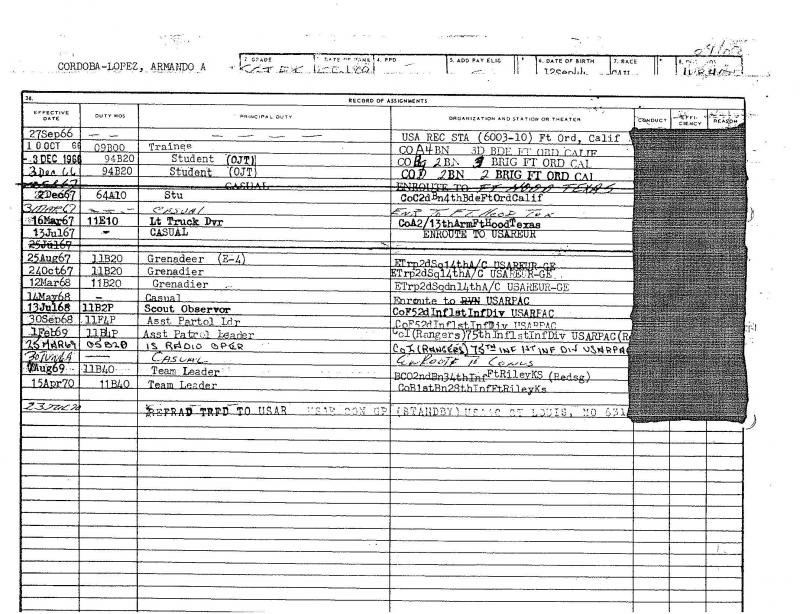 CORDOBA-LOPEZ, ARMANDO A
2. GRADE 4. PPD 5. ADD PAY ELIG 6. DATE OF BIRTH 7. RACE
12Sep44 CAU
38. RECORD OF ASSIGNMENTS
EFFECTIVE DATE DUTY MOS PRINCIPAL DUTY ORGANIZATION AND STATION OR THEATER CONDUCT EFFI-CIENCY REASON
27Sep66 — — USA REC STA (6003-10) Ft Ord, Calif
10 OCT 66 09B00 Trainee CO A 4 BN 3D BDE FT ORD CALIF
-3 DEC 1966 94B20 Student (OJT) CO B 2 BN BRIG FT ORD CAL
3 Dec 66 94B20 Student (OJT) CO D 2BN 2 BRIG FT ORD CAL
CASUAL ENROUTE TO FT HOOD TEXAS
2Dec67 64A10 Stu CoC2dBn4thBdeFtOrdCalif
CASUAL ENR TO FT HOOD TEX
16Mar67 11E10 Lt Truck Dvr CoA2/13thArmFtHoodTexas
13Jul67 - CASUAL ENROUTE TO USAREUR
25Jul67
25Aug67 11B20 Grenadeer (E-4) ETrp2dSq14thA/C USAREUR-GE
24Oct67 11B20 Grenadier ETrp2dSq14thA/C USAREUR-GE
12Mar68 11B20 Grenadier ETrp2dSqdn14thA/C USAREUR-GE
14May68 - Casual Enroute to RVN USARPAC
13Jul68 11B2P Scout Observor CoF52dInf1stInfDiv USARPAC
30Sep68 11F4P Asst Partol Ldr CoF52dInf1stInfDiv USARPAC
1Feb69 11B4P Asst Patrol Leader CoI(Rangers)75thInf1stInfDiv USARPAC(R
25MAR69 05B20 IS RADIO OPER CoI (RANGERS) 75TH INF 1ST INF DIV USARPAC
— CASUAL ENROUTE TO CONUS
Aug69 11B40 Team Leader BCO2ndBn34thInfFtRileyKS (Redsg)
15Apr70 11B40 Team Leader CoB1stBn28thInfFtRileyKs
23JUL70 REFRAD TRFD TO USAR USAR CON GP (STANDBY) USAAC ST LOUIS, MO 631